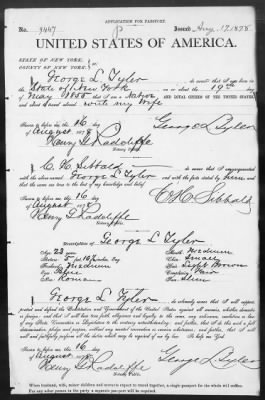 APPLICATION FOR PASSPORT.
No. 9447 Issued Aug. 17, 1878
UNITED STATES OF AMERICA.
STATE OF NEW YORK,
COUNTY OF NEW YORK,
George L Tyler
State of New York on the 19th day
May 1855 that I am a Native AND LOYAL CITIZEN OF THE UNITED STATES,
and about to travel with my Wife
Sworn to before me this 16 George L Tyler
August 1878
Henry Radcliffe
C. H. Sibbald
with the above named George L Tyler and with the facts stated by him
are true to the best of my knowledge and belief
Sworn to before me this 16
August 1878 C. H. Sibbald
Henry Radcliffe
Description of George L Tyler
Age: 23 Mouth: Medium
Stature: 5 feet 10 inches, Eng. Chin: Small
Forehead: Medium Hair: Light Brown
Eyes: Blue Complexion: Fair
Nose: Roman Face: Thin
George L Tyler do solemnly swear that I will support,
protect and defend the Constitution and Government of the United States against all enemies, whether domestic
or foreign; and that I will bear true faith, allegiance and loyalty to the same, any ordinance, resolution or law
of any State Convention or Legislature to the contrary notwithstanding; and further, that I do this with a full
determination, pledge and purpose, without any mental reservation or evasion whatsoever; and further, that I will
well and faithfully perform all the duties which may be required of me by law. So help me God.
Sworn to before me this 16
August 1878 George L Tyler
Henry Radcliffe
Notary Public.
When husband, wife, minor children and servants expect to travel together, a single passport for the whole will suffice.
For any other person in the party a separate passport will be required.